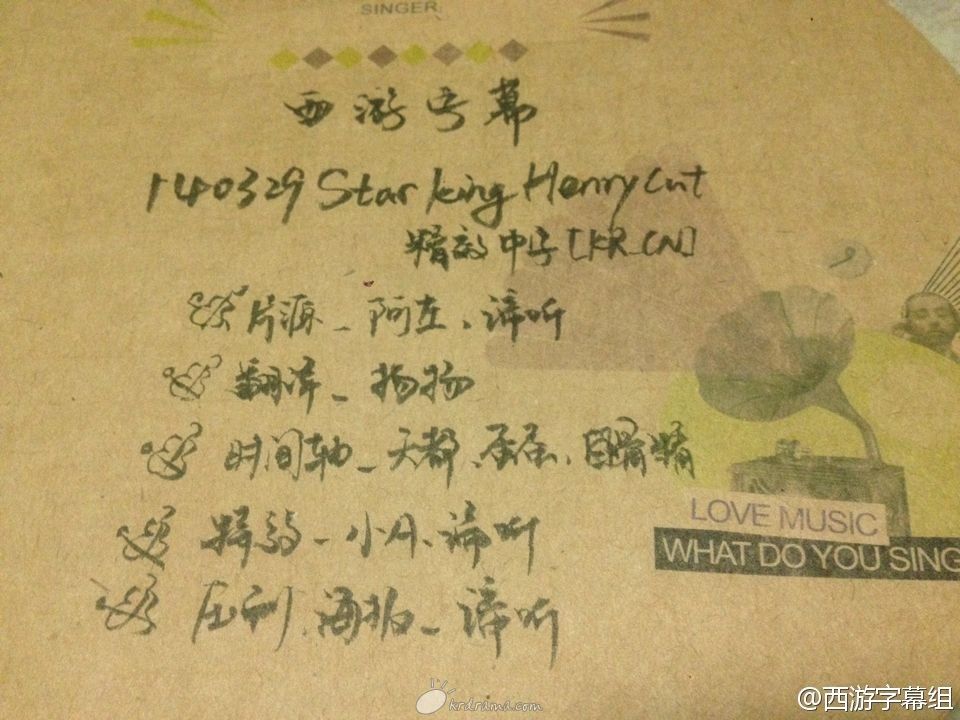 SINGER
西游字幕
140329 Star King Henry Cut
精效中字[KR_CN]
片源_阿左、谛听
翻译_扬扬
时间轴_天都、蛋蛋、白骨精
特效_小A、谛听
压制、海报_谛听
LOVE MUSIC
WHAT DO YOU SING
krdrama.com
@西游字幕组